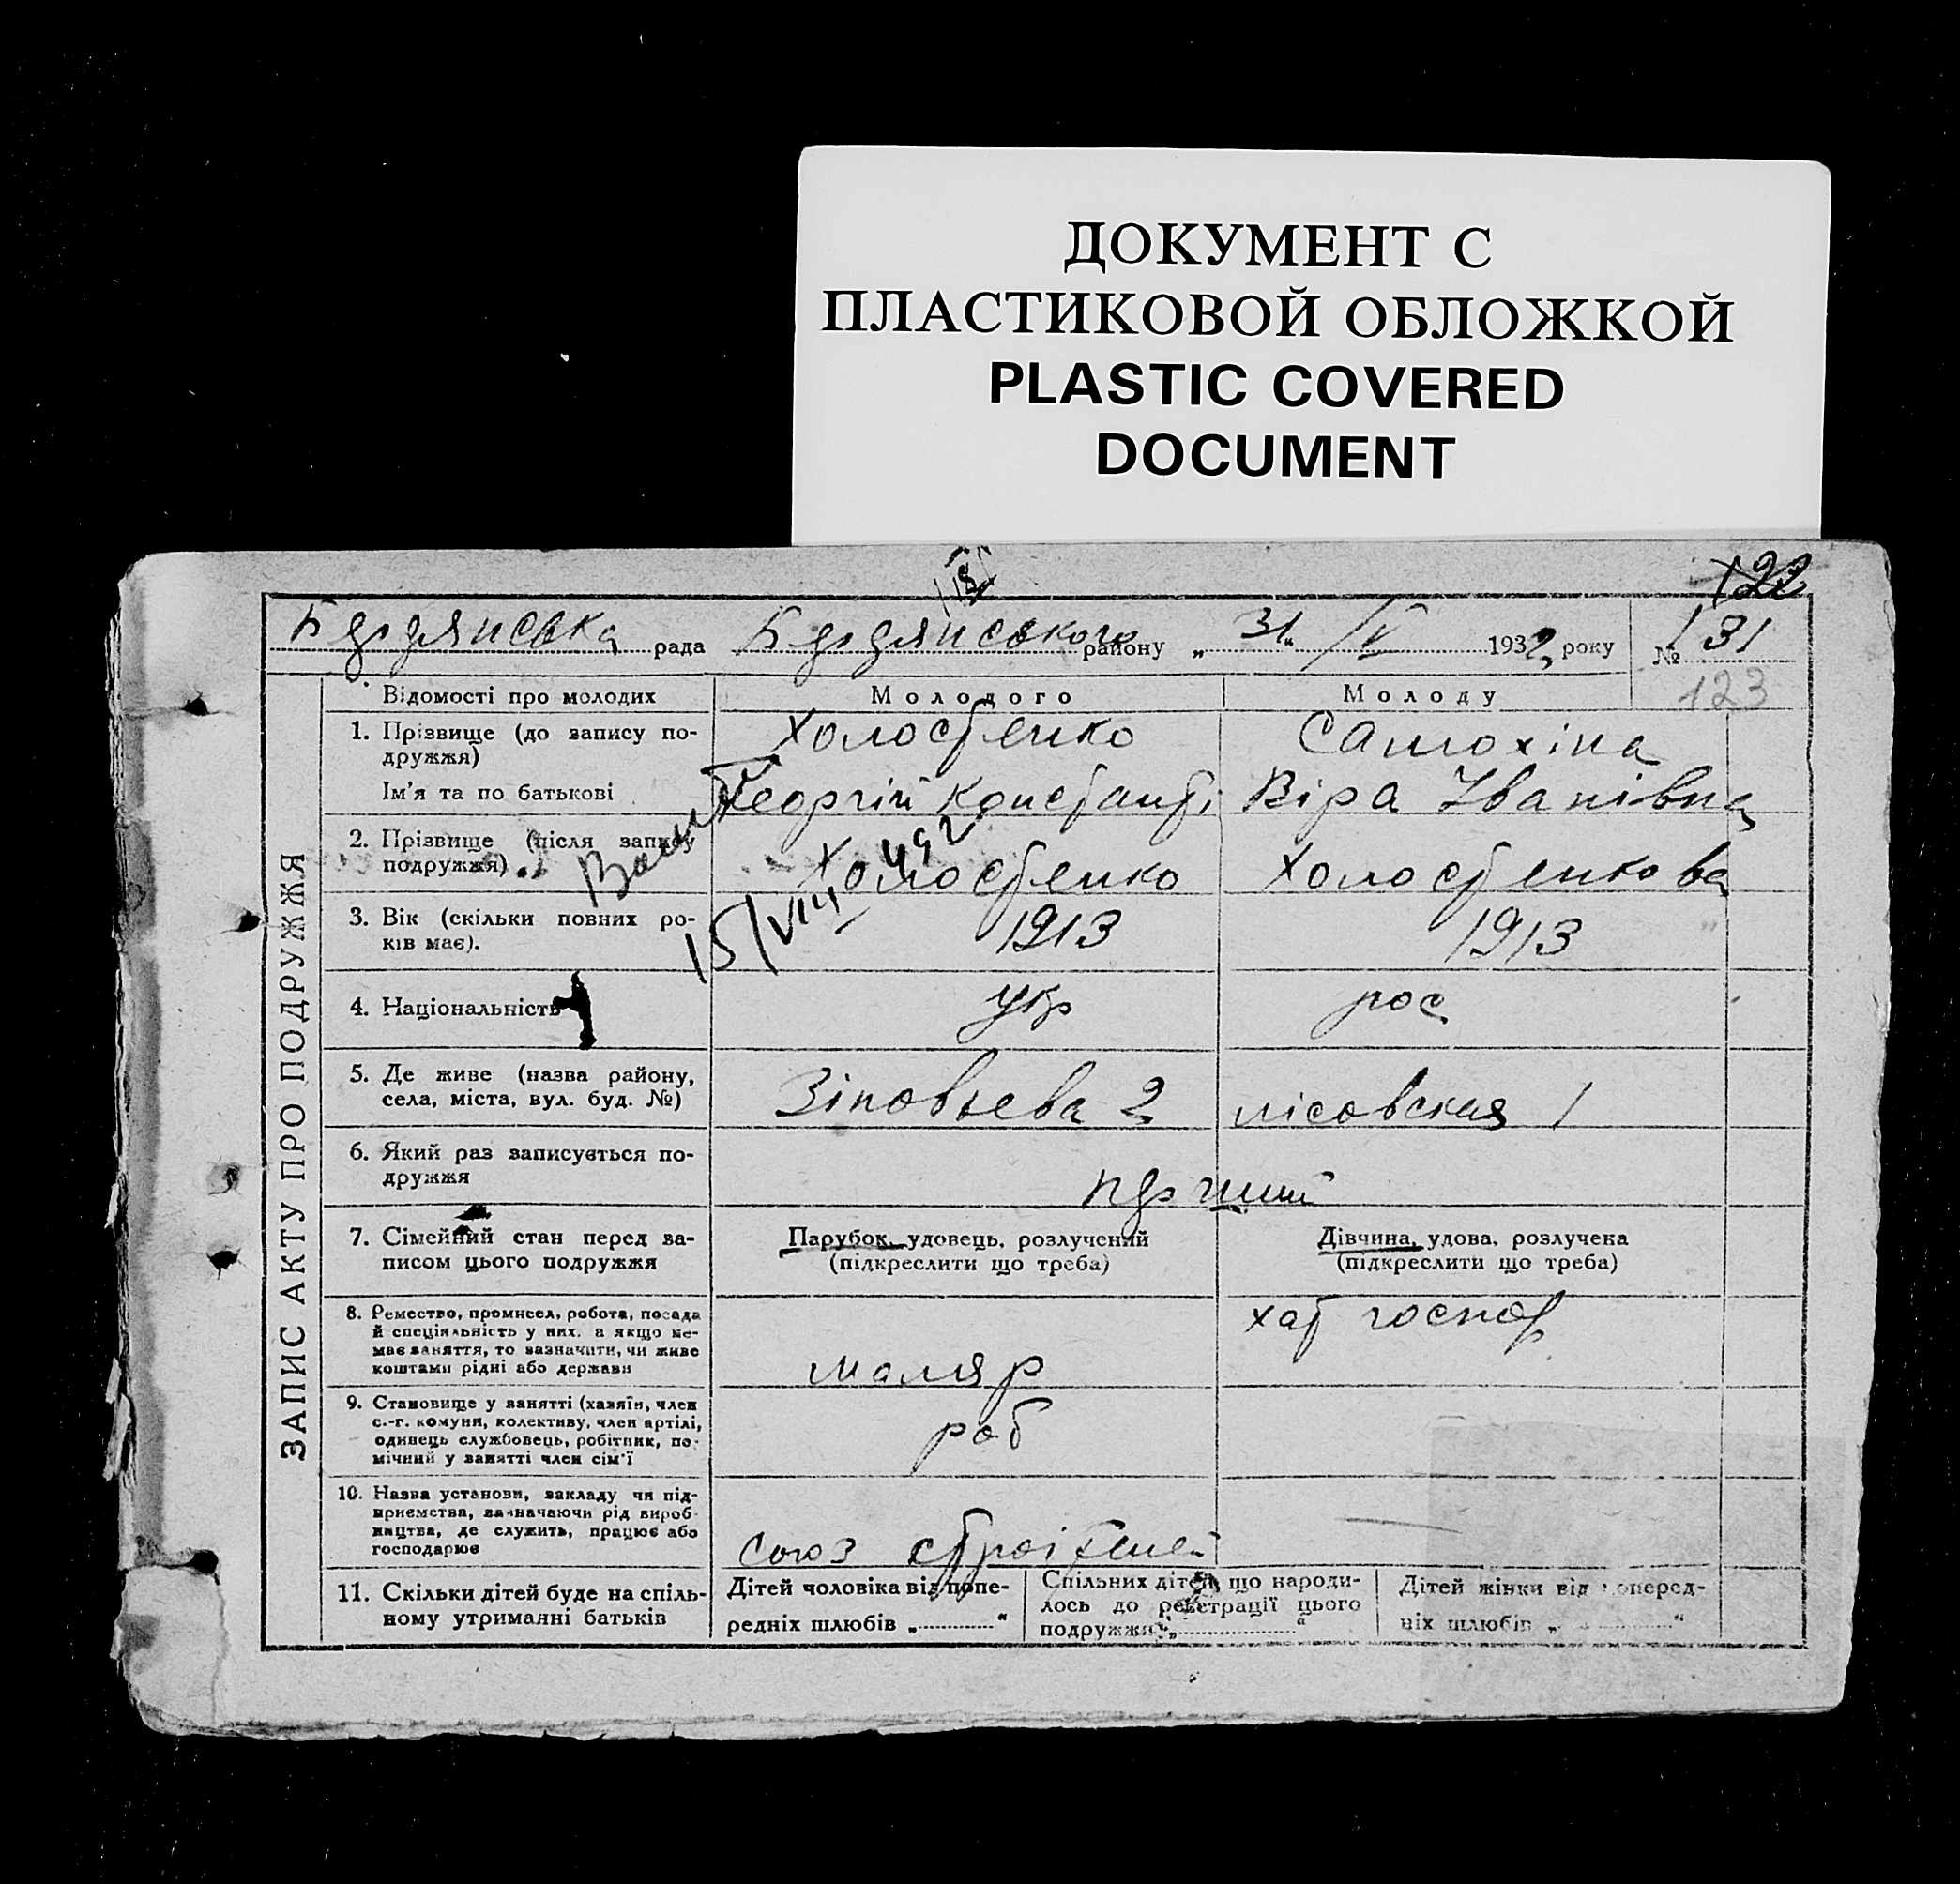 ДОКУМЕНТ С
ПЛАСТИКОВОЙ ОБЛОЖКОЙ
PLASTIC COVERED
DOCUMENT
122
Бердянська рада Бердянського району „31“ /V 1932 року № 131
123
ЗАПИС АКТУ ПРО ПОДРУЖЖЯ
Відомості про молодих Молодого Молоду
1. Прізвище (до запису по-
дружжя)
Холостенко Самохіна
Ім'я та по батькові Георгій Константі Віра Іванівна
2. Прізвище (після запису
подружжя)
Холостенко Холостенкова
3. Вік (скільки повних ро-
ків має).
1913 1913
15/VIII 492
4. Національність укр рос
5. Де живе (назва району,
села, міста, вул. буд. №)
Зіновьева 2 лісовская 1
6. Який раз записується по-
дружжя
перший
7. Сімейний стан перед за-
писом цього подружжя
Парубок, удовець, розлучений
(підкреслити що треба)
Дівчина, удова, розлучека
(підкреслити що треба)
8. Ремество, промисел, робота, посада
й спеціяльність у них, а якщо не-
має заняття, то зазначити, чи живе
коштами рідні або держави
маляр хат господ
9. Становище у занятті (хазяїн, член
с.-г. комуни, колективу, член артілі,
одинець службовець, робітник, по-
мічний у занятті член сім'ї
роб
10. Назва установи, закладу чи під-
приємства, зазначаючи рід вироб-
ництва, де служить, працює або
господарює
союз строітелей
11. Скільки дітей буде на спіль-
ному утриманні батьків
Дітей чоловіка від попе-
редніх шлюбів „ “
Спільних дітей, що народи-
лось до реєстрації цього
подружжя „ “
Дітей жінки від поперед-
ніх шлюбів „ “